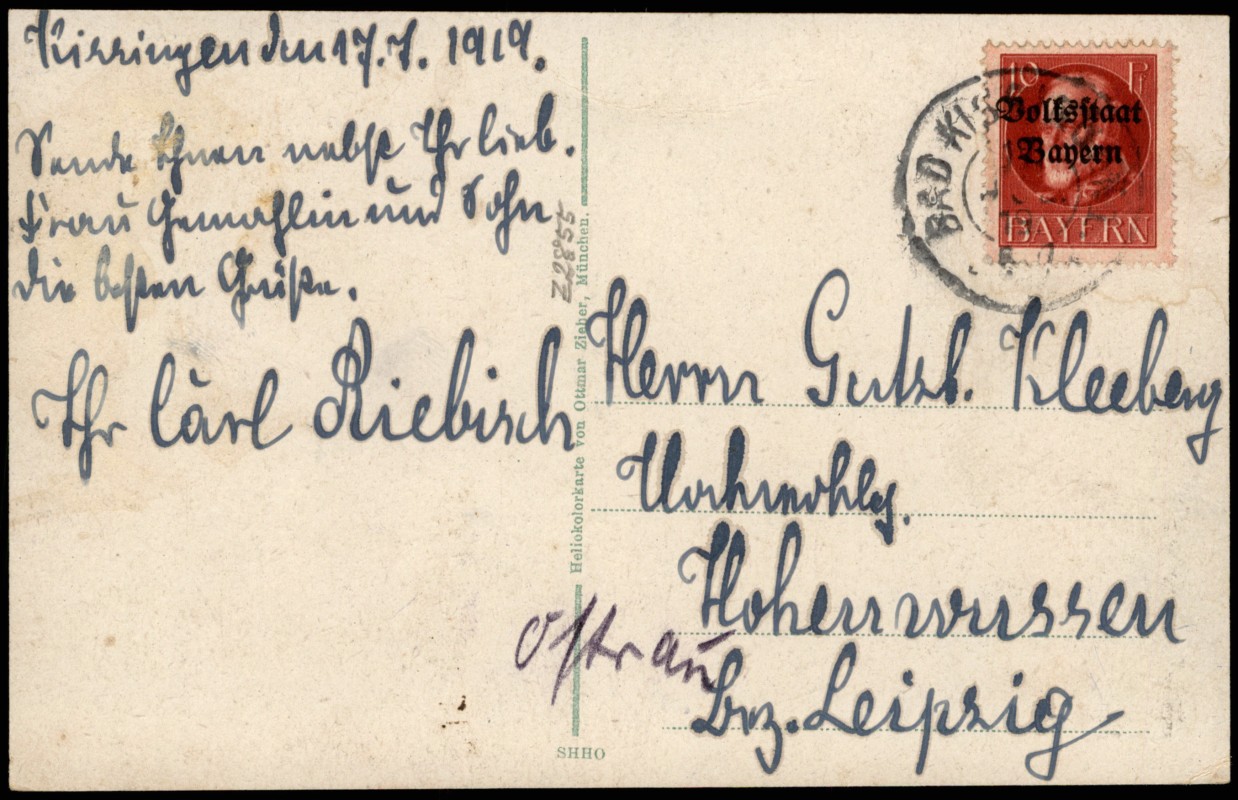 Kissingen den 17.7. 1919.
Sende Ihnen nebst Ihr lieb.
Frau Gemahlin und Sohn
die besten Grüße.
Ihr Carl Riebisch
Z2855
Heliokolorkarte von Ottmar Zieher, München.
SHHO
10 Pf
Volksstaat
Bayern
BAYERN
BAD KISS
Herrn Gutsb. Kleeberg
Hohenwussen
Ostrau
Bez. Leipzig